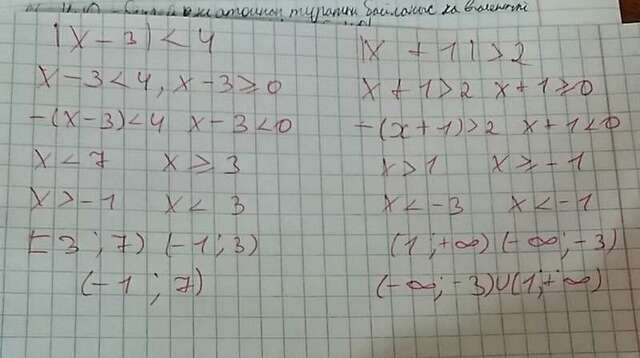 |x - 3| < 4
x - 3 < 4, x - 3 ≥ 0
-(x - 3) < 4 x - 3 < 0
x < 7 x ≥ 3
x > -1 x < 3
[3 ; 7) (-1 ; 3)
(-1 ; 7)
|x + 1| > 2
x + 1 > 2 x + 1 ≥ 0
-(x + 1) > 2 x + 1 < 0
x > 1 x ≥ -1
x < -3 x < -1
(1 ; +∞) (-∞ ; -3)
(-∞ ; -3) ∪ (1 ; +∞)